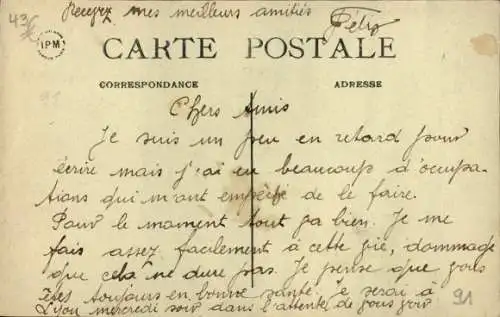 43
Recevez mes meilleurs amitiés
Félix
IPM
CARTE POSTALE
CORRESPONDANCE
ADRESSE
91
Chers Amis
Je suis un peu en retard pour
écrire mais j'ai eu beaucoup d'occupa-
tions qui m'ont empêché de le faire.
Pour le moment tout va bien. Je me
fais assez facilement à cette vie, dommage
que cela ne dure pas. Je pense que vous
êtes toujours en bonne santé. Je serai à
Lyon mercredi soir dans l'attente de vous voir
91